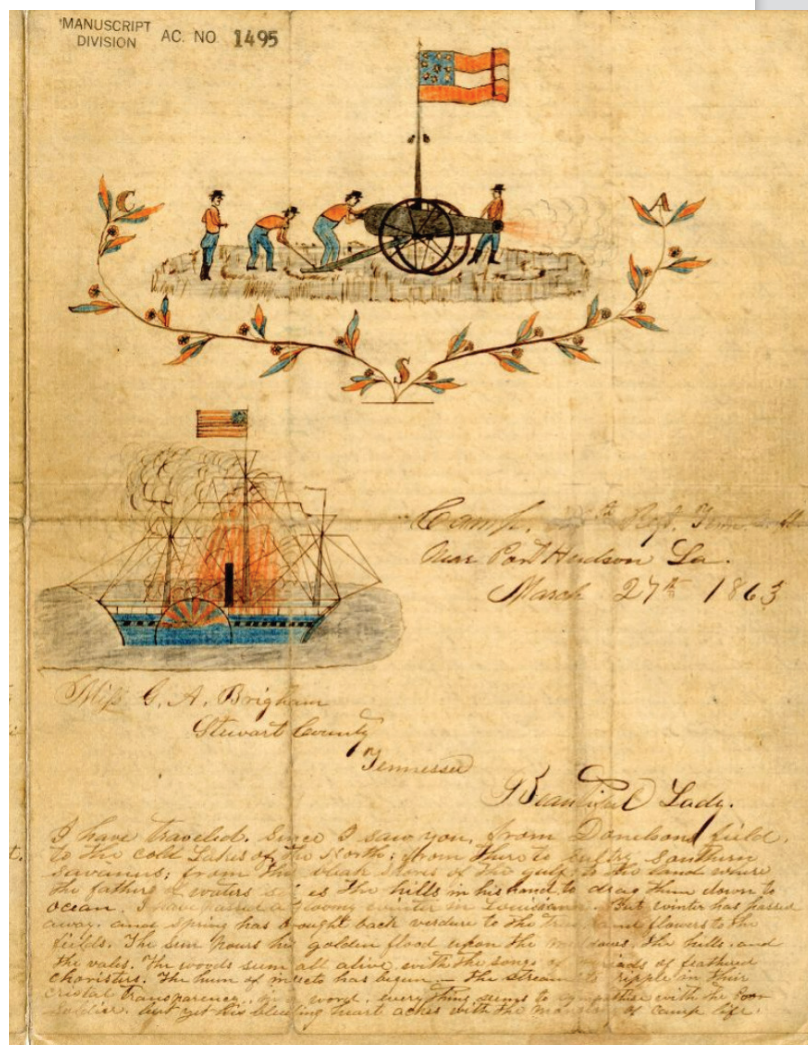 MANUSCRIPT
DIVISION AC. NO. 1495
C A
S
Camp, Regt. Tenn.
Near Port Hudson La.
March 27th 1863
Miss G. A. Brigham
Stewart County
Tennessee
Beautiful Lady.
I have traveled, since I saw you, from Donelsons field,
to the cold Lakes of the North; from there to sultry Southern
Savanus; from the bleak shores of the gulf, to the land where
the father of waters the hills in his hand to drag them down to
ocean. I have passed a gloomy winter in Louisiana. But winter has passed
away, and spring has brought back verdure to the and flowers to the
fields. The Sun pours his golden flood upon the the hills, and
the vales. The woods seem all alive with the songs of of feathered
choristers. The hum of insects has begun — the streams to ripple in their
cristal transparency. word, every thing seems to with the Poor
soldier, but yet his bleeding heart aches with the of camp life.